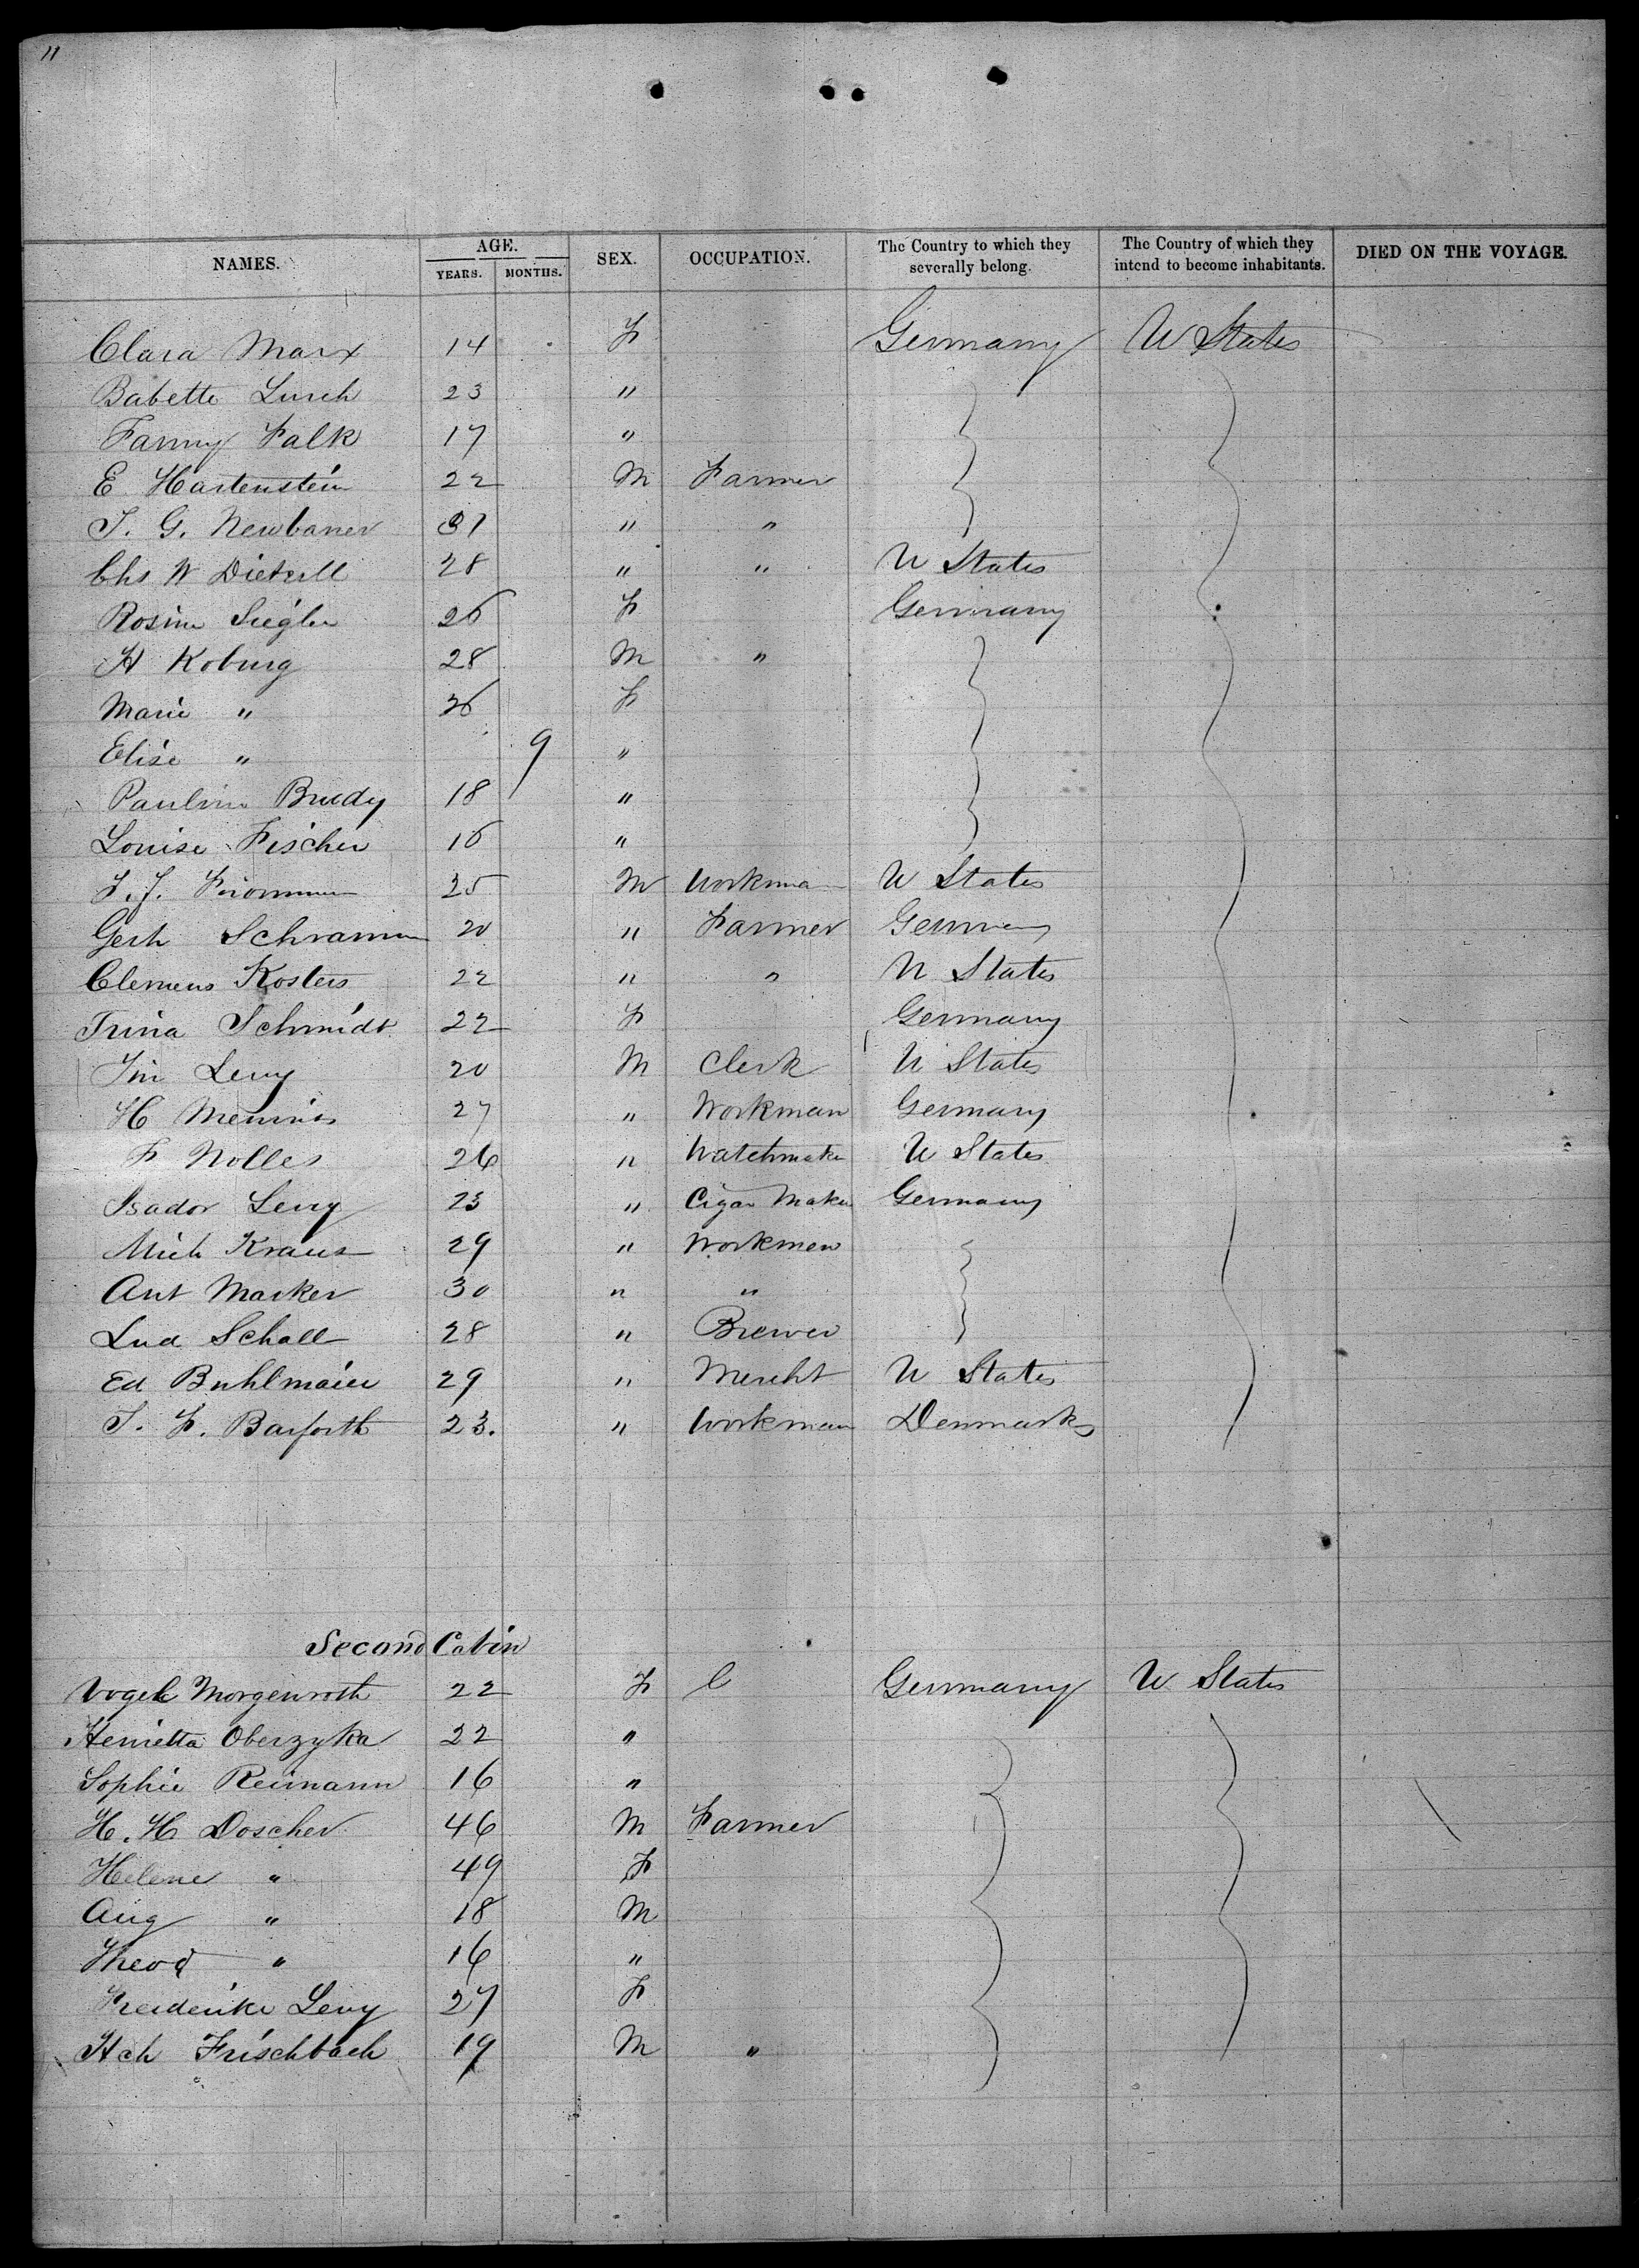 11
NAMES. AGE. YEARS. MONTHS. SEX. OCCUPATION. The Country to which they severally belong. The Country of which they intend to become inhabitants. DIED ON THE VOYAGE.
Clara Marx 14 F Germany U States
Babette Lurch 23 "
Fanny Falk 17 "
E Hartenstein 22 M Farmer
J. G. Newbaner 31 " "
Chs W Dietzell 28 " " U States
Rosine Siegler 26 F Germany
H Koburg 28 M "
Marie " 36 F
Elise " 9 "
Pauline 18 "
Louise Fischer 16 "
25 M Workman U States
Gerh Schramm 20 " Farmer Germany
Clemens Kosters 22 " " U States
Trina Schmidt 22 F Germany
Levy 20 M Clerk U States
H 27 " Workman Germany
F Nolles 26 " Watchmaker U States
Isador Levy 23 " Cigar Maker Germany
Mich Kraus 29 " Workman
Ant Marker 30 " "
Lud Schall 28 " Brewer
Ed Buhlmaier 29 " Mercht U States
J. F. Barforth 23. " Workman Denmark
Second Cabin
Morgenroth 22 F Germany U States
Henrietta Oberzyka 22 "
Sophie Reimann 16 "
H. H Doscher 46 M Farmer
Helene " 49 F
Aug " 18 M
Theod " 16 "
Frederike Levy 27 F
Hch Frischbach 19 M "